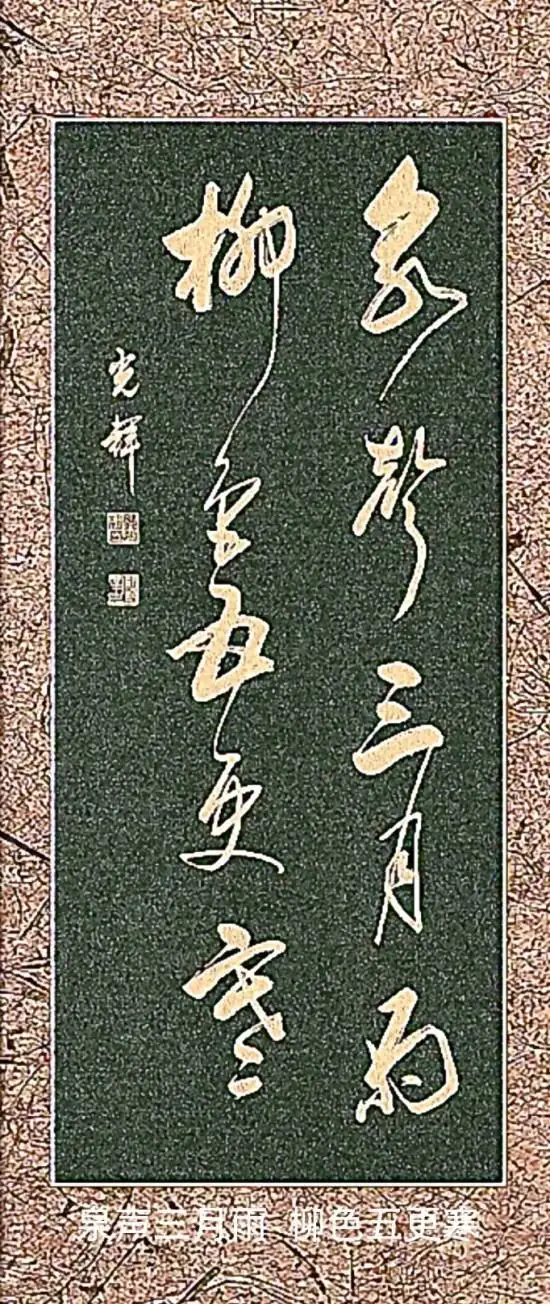 泉聲三月雨
柳色五更寒
光輝
泉声三月雨 柳色五更寒